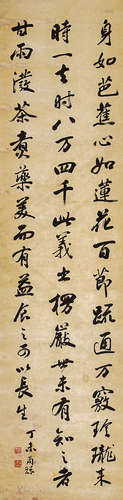 身如芭蕉心如蓮花百節疏通萬竅玲瓏來
時一去时八万四千此義出楞嚴世未有知之者
甘雨潑茶煮藥美而有益食之可以長生
丁未